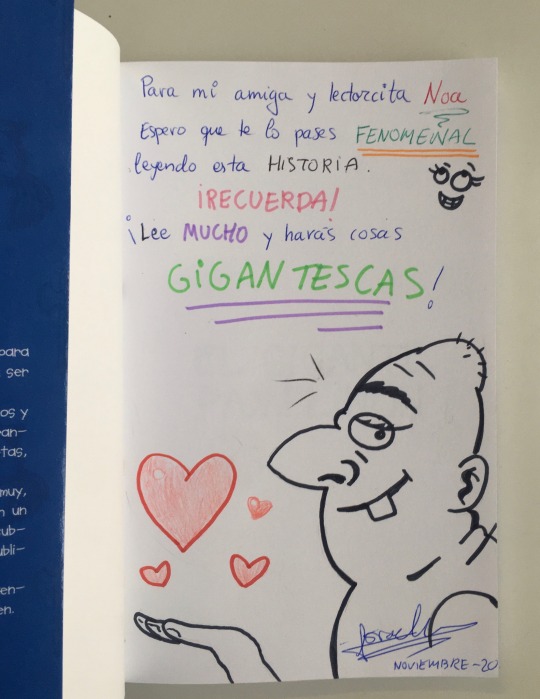 Para mi amiga y lectorcita Noa
Espero que te lo pases FENOMENAL
leyendo esta HISTORIA.
¡RECUERDA!
¡Lee MUCHO y harás cosas
GIGANTESCAS!
NOVIEMBRE-20
para
ser
os y
ean-
tas,
muy,
n un
cub-
ubli-
en-
en.